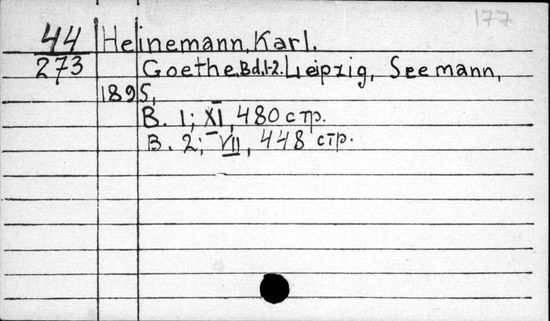 177
44 Heinemann, Karl.
273 Goethe. Bd. 1-2. Leipzig, Seemann,
1895,
B. 1; XI, 480 стр.
B. 2; VII, 448 стр.